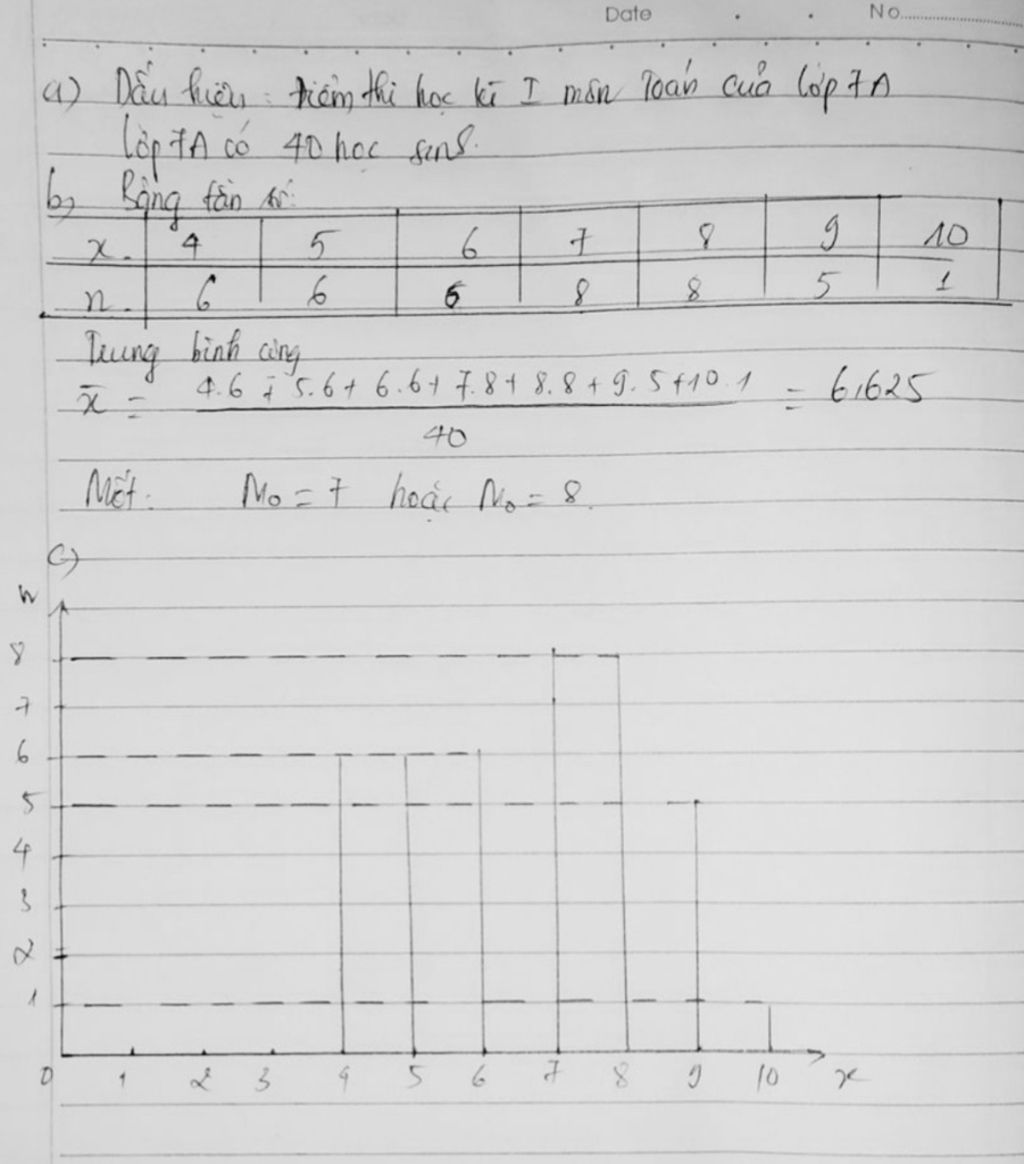 Date . . No
a) Dấu hiệu: điểm thi học kì I môn Toán của lớp 7A
lớp 7A có 40 học sinh.
b) Bảng tần số:
x. 4 5 6 7 8 9 10
n. 6 6 6 8 8 5 1
Trung bình cộng
x̄ = (4.6 + 5.6 + 6.6 + 7.8 + 8.8 + 9.5 + 10.1) / 40 = 6,625
Mốt: M₀ = 7 hoặc M₀ = 8.
c)
n
8
7
6
5
4
3
2
1
0 1 2 3 4 5 6 7 8 9 10 x